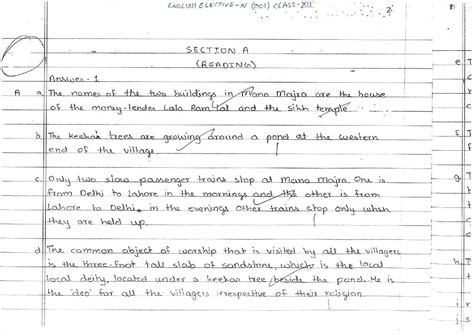 ENGLISH ELECTIVE-N (001) CLASS-XII
2
SECTION A
(READING)
Answer-1
A a. The names of the two buildings in Mano Majra are the house
of the money-lender Lala Ram Lal and the Sikh temple.
b. The keekar trees are growing around a pond at the western
end of the village.
c. Only two slow passenger trains stop at Mano Majra. One is
from Delhi to Lahore in the mornings and the other is from
Lahore to Delhi, in the evenings other trains stop only when
they are held up.
d. The common object of worship that is visited by all the villagers
is the three-foot tall slab of sandstone, which is the local
local deity, located under a keekar tree beside the pond. He is
the 'deo' for all the villagers irrespective of their religion.